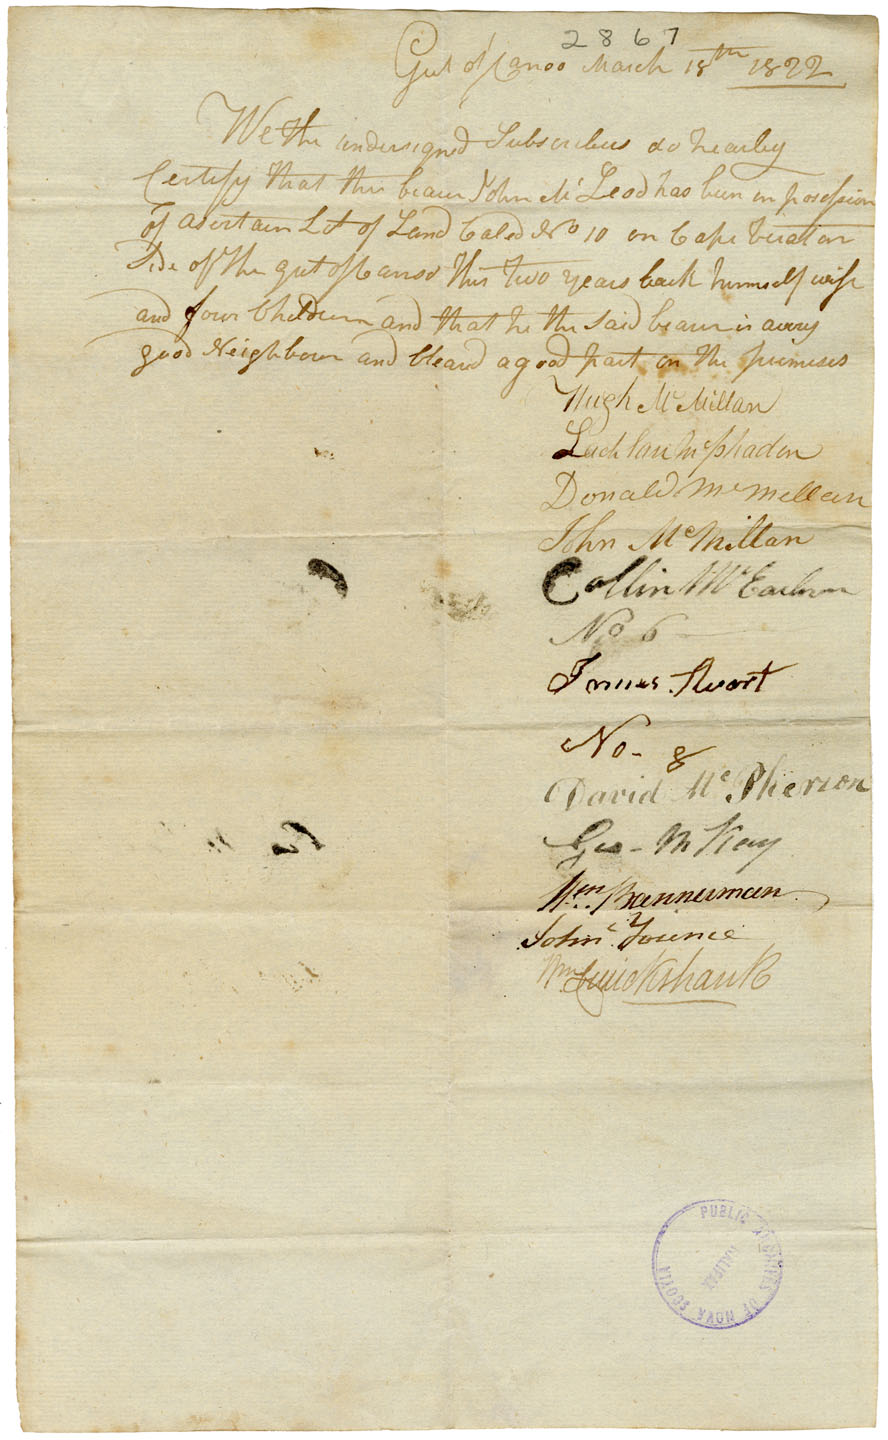 2867
Gut of Canso March 18th 1822
We the undersigned Subscribers do hearby
Certify that the bearer John Mc Leod has been in posession
of a certain Lot of Land Caled No 10 on Cape Britain
Side of the gut of Canso this two years back himself wife
and four Children and that he the Said bearer is a very
good Neighbour and Cleared a good part on the premises
Hugh Mc Millan
Lachlan Mc Phaden
Donald Mc Mellan
John Mc Millan
Collin Mc Eachern
No 6
James Stuart
No- 8
David Mc Pherson
Geo- Mc Kay
Wm Bannerman
John
Wm Cruickshank
PUBLIC ARCHIVES OF NOVA SCOTIA
HALIFAX